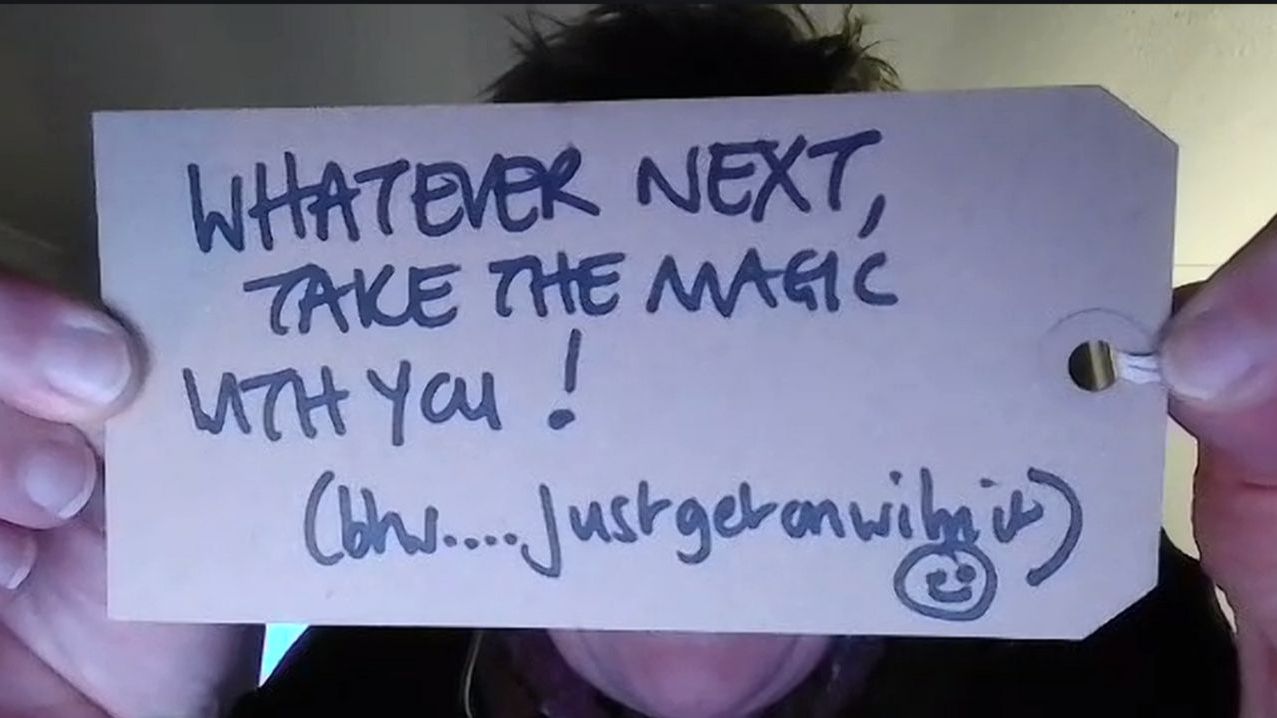 WHATEVER NEXT,
TAKE THE MAGIC
WITH YOU !
(btw.... just get on with it)